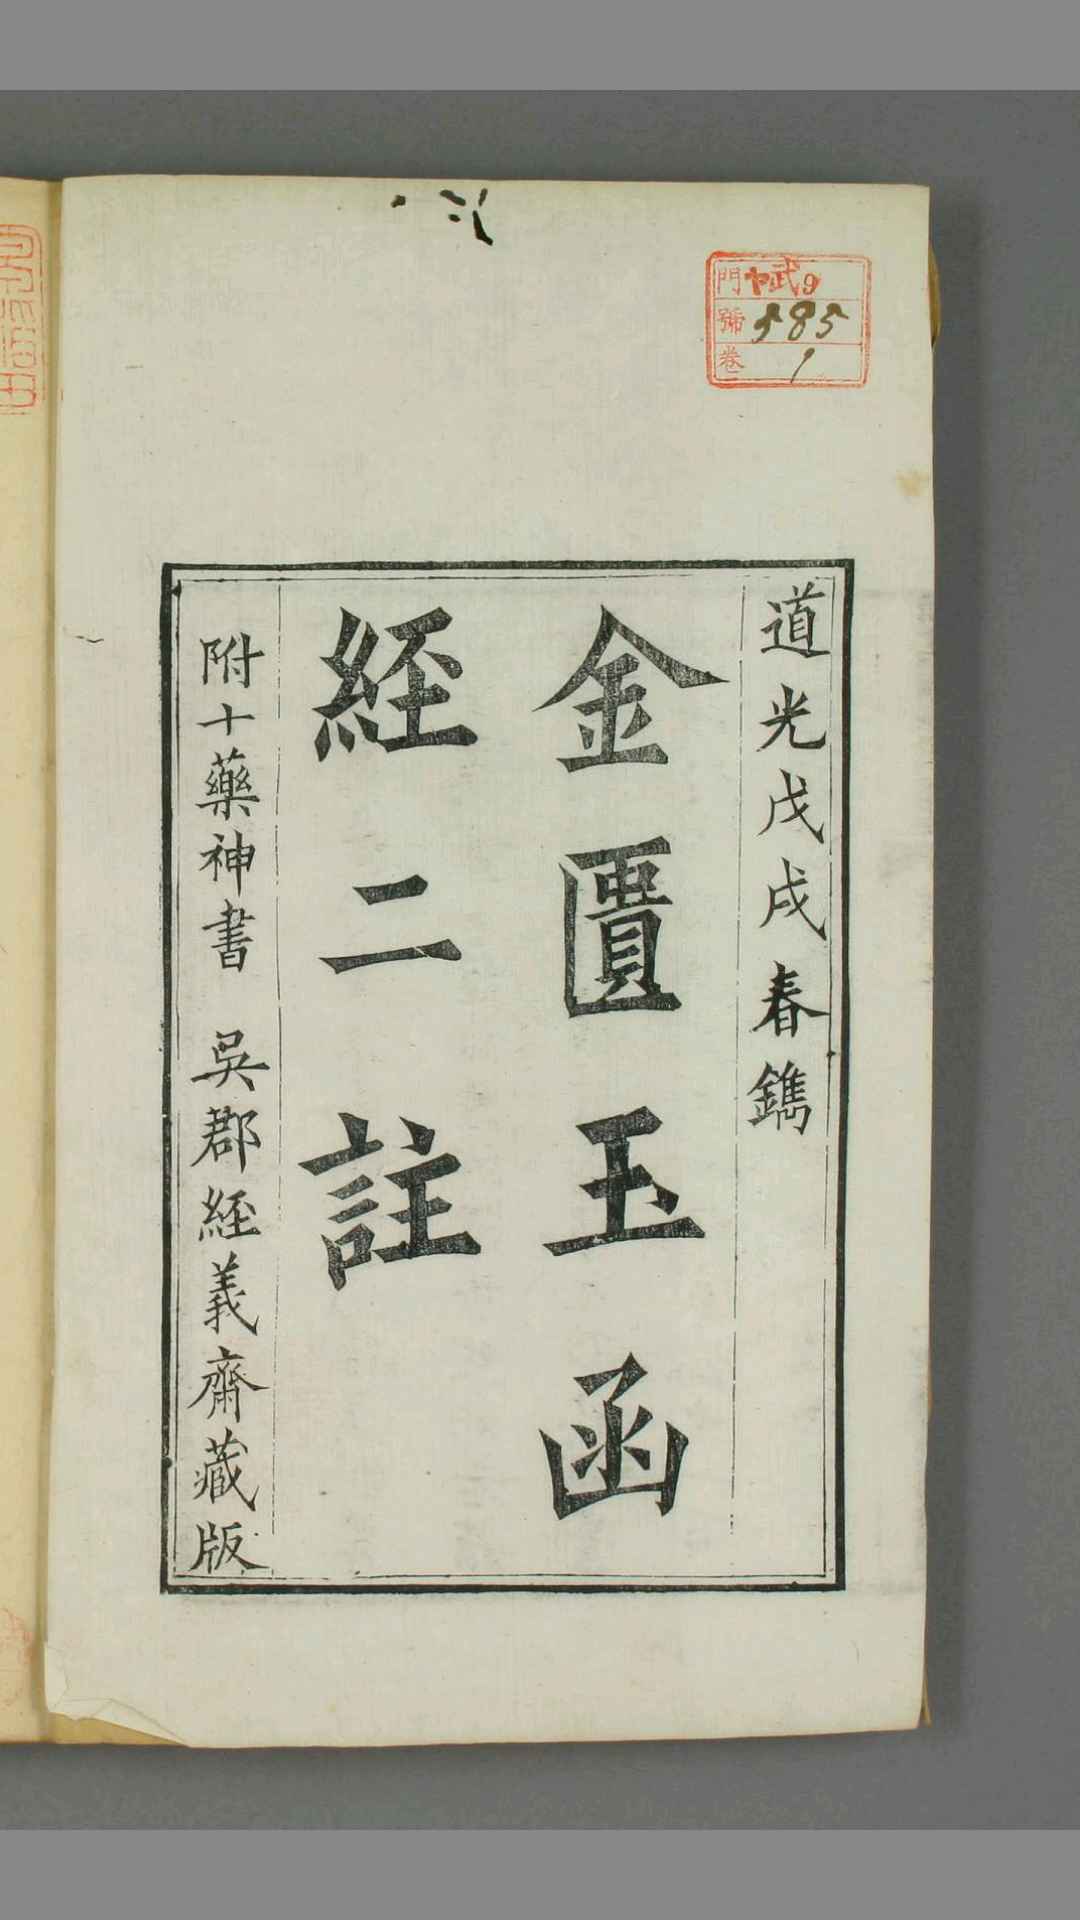 門 ヤ武9
號 585
卷 1
道光戊戌春鐫
金匱玉函
經二註
附十藥神書 吳郡經義齋藏版